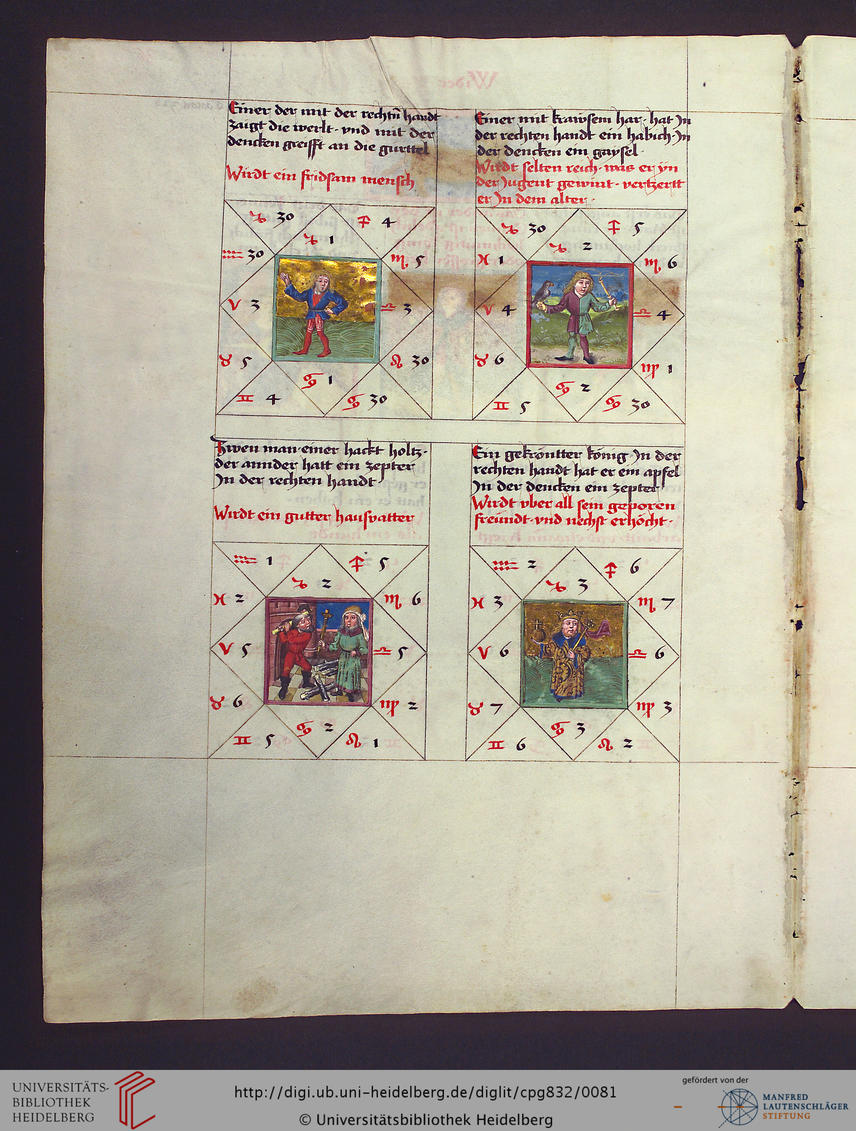 Einer der mit der rechtn̄ handt
zaigt die werlt · vnd mit der
dencken greifft an die gurttel
Wirdt ein fridsam mensch
♑ 30
♐ 4
♑ 1
♒ 30
♏ 5
♈ 3
♎ 3
♉ 5
♌ 30
♋ 1
♊ 4
♋ 30
Einer mit krawsem har · hat Jn
der rechten handt ein habich · Jn
der dencken ein gaysel ·
Wirdt selten reich · was er yn
der Jugent gewint · vertzertt
er Jn dem alter ·
♑ 30
♐ 5
♑ 2
♓ 1
♏ 6
♈ 4
♎ 4
♉ 6
♍ 1
♋ 2
♊ 5
♋ 30
Zwen man · einer hackt holtz ·
der annder hatt ein zepter
Jn der rechten handt
Wirdt ein gutter hausvatter
♒ 1
♐ 5
♑ 2
♓ 2
♏ 6
♈ 5
♎ 5
♉ 6
♍ 2
♋ 2
♊ 5
♌ 1
Ein gekröntter könig Jn der
rechten handt hat er ein apfel
Jn der dencken ein zepter
Wirdt vber all sein geporen
freündt · vnd nechst erhöcht ·
♒ 2
♐ 6
♑ 3
♓ 3
♏ 7
♈ 6
♎ 6
♉ 7
♍ 3
♋ 3
♊ 6
♌ 2
UNIVERSITÄTS-
BIBLIOTHEK
HEIDELBERG
http://digi.ub.uni-heidelberg.de/diglit/cpg832/0081
© Universitätsbibliothek Heidelberg
gefördert von der
MANFRED
LAUTENSCHLÄGER
STIFTUNG